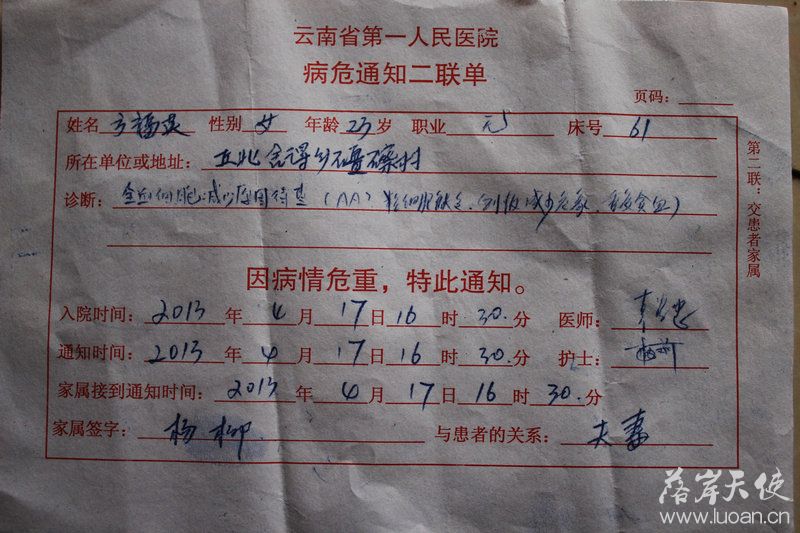 云南省第一人民医院
病危通知二联单
页码：
姓名 性别 女 年龄 23 岁 职业 无 床号 61
所在单位或地址： 丘北舍得乡
诊断： 全血细胞减少原因待查 （AA） 粒细胞缺乏、血小板减少危象、重度贫血）
因病情危重，特此通知。
入院时间：2013 年 4 月 17 日 16 时 30 分 医师：
通知时间：2013 年 4 月 17 日 16 时 30 分 护士：
家属接到通知时间：2013 年 4 月 17 日 16 时 30 分
家属签字： 杨柳 与患者的关系： 夫妻
第二联：交患者家属
落岸天使
www.luoan.cn